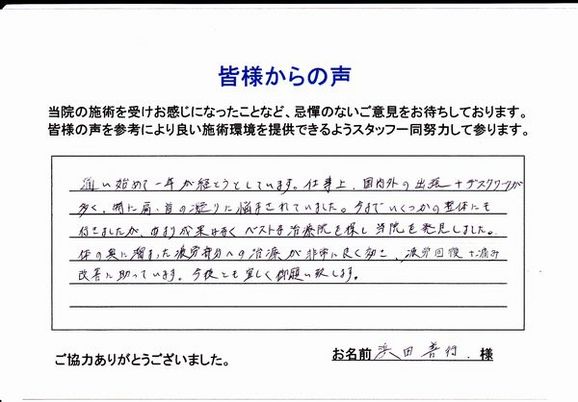 皆様からの声
当院の施術を受けお感じになったことなど、忌憚のないご意見をお待ちしております。
皆様の声を参考により良い施術環境を提供できるようスタッフ一同努力して参ります。
通い始めて一年が経とうとしています。仕事上、国内外の出張+デスクワークが
多く、特に肩・首の凝りに悩まされていました。今までいくつかの整体にも
行きましたが、あまり成果は無くベストな治療院を探し当院を発見しました。
体の奥に溜まった疲労部分への治療が非常に良く効き、疲労回復+痛み
改善に助っています。今後とも宜しく御願い致します。
ご協力ありがとうございました。
お名前 浜田 善行 様